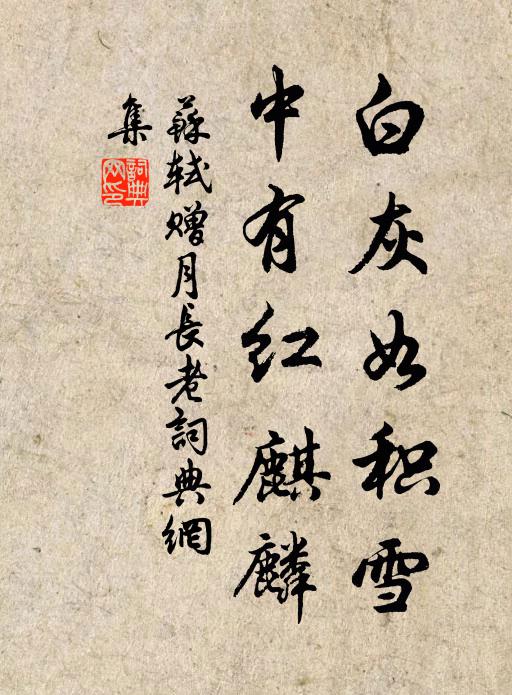 白灰如积雪
中有红麒麟
蘇轼赠月長老詞典網
集
詞典
网印